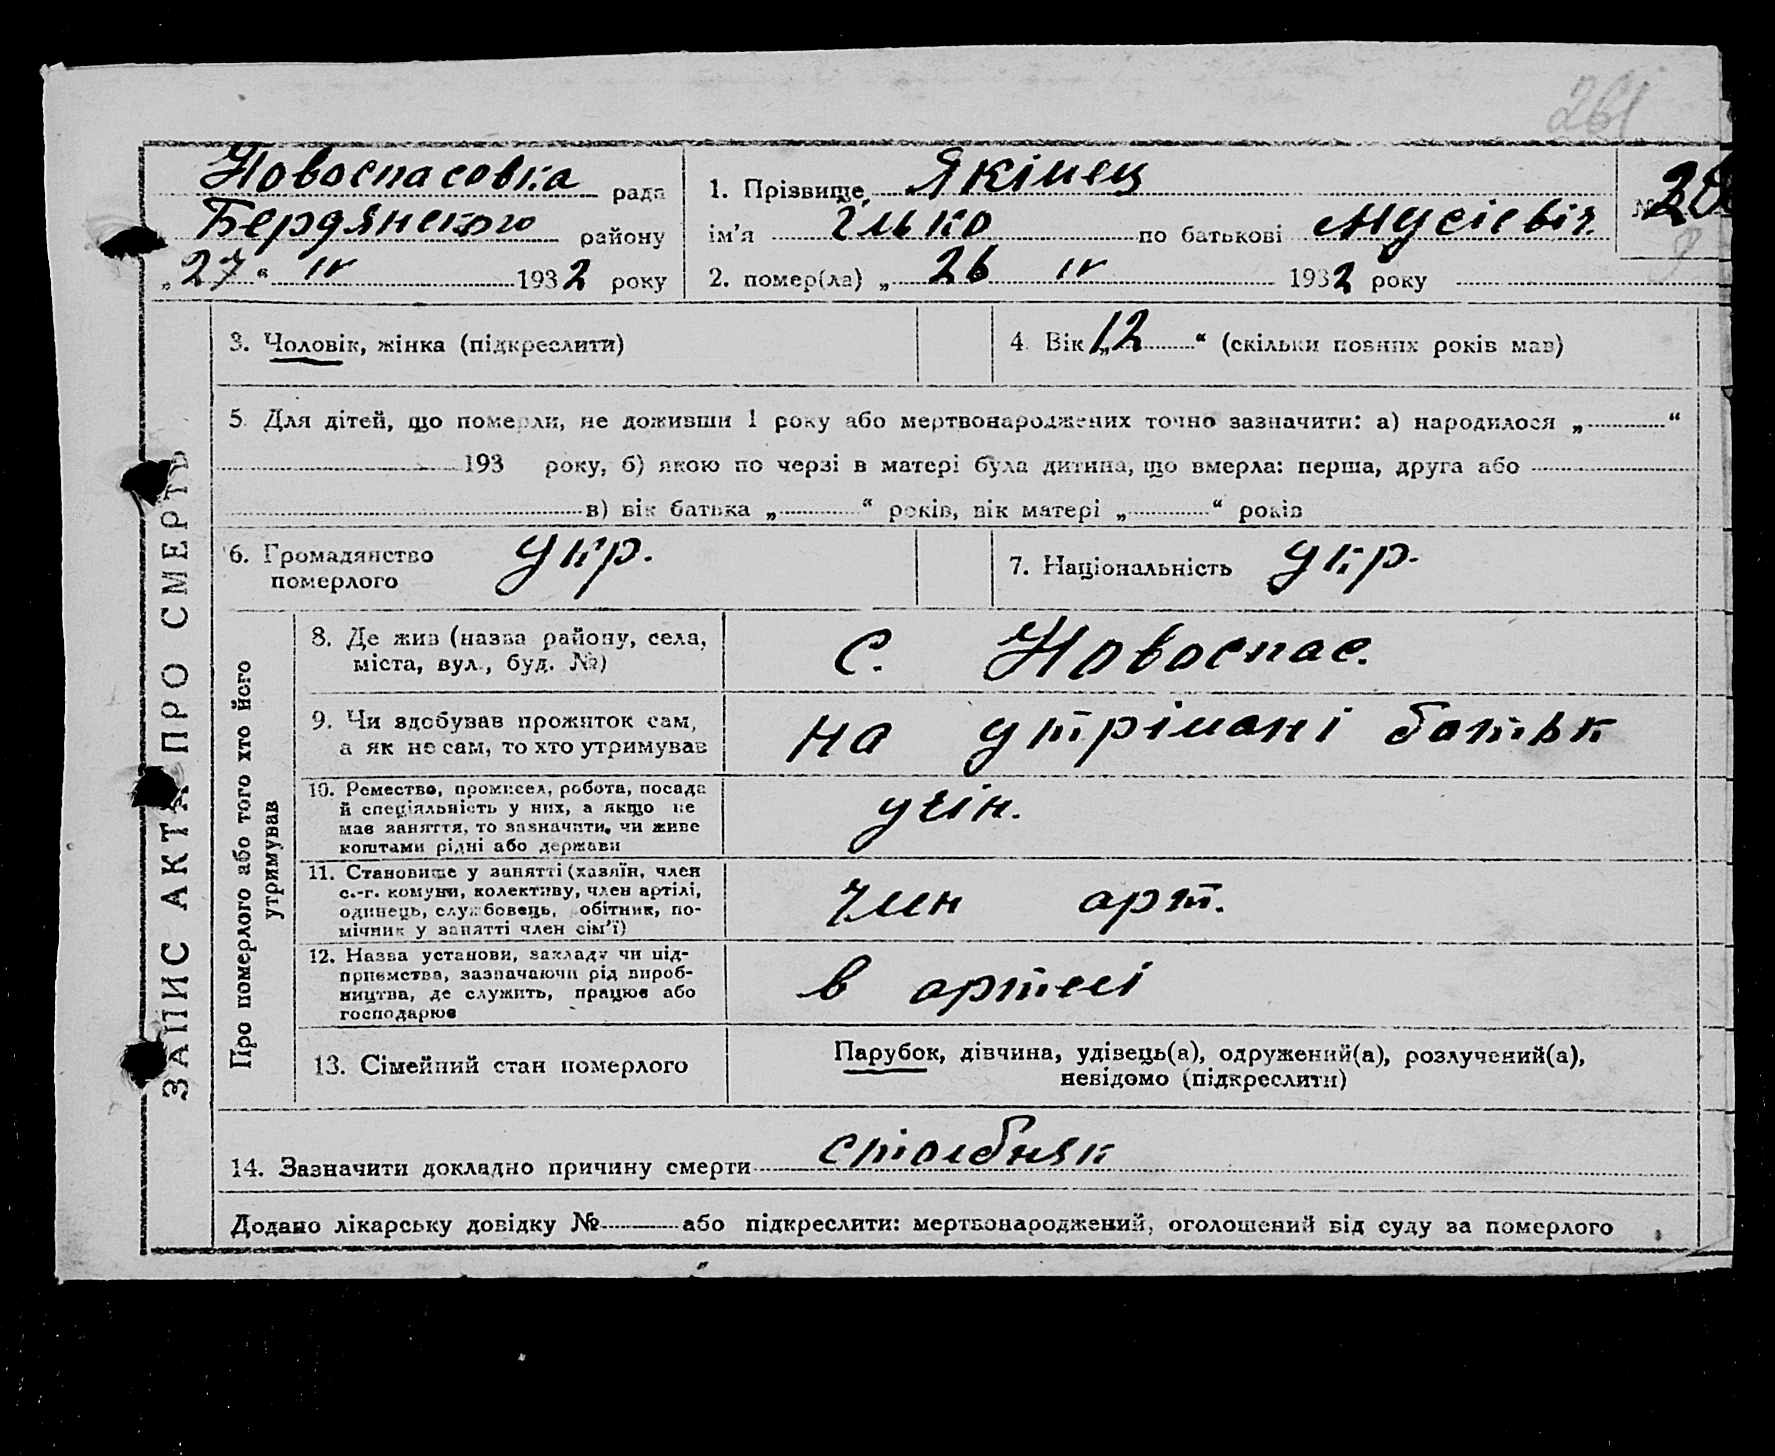 261
Новоспасовка рада
Бердянского району
„27“ IV 1932 року
1. Прізвище Якімец
ім'я Ілько по батькові Мусієвіч
№ 20
2. помер(ла) „26 IV 1932 року
3. Чоловік, жінка (підкреслити)
4. Вік „12“ (скільки повних років мав)
5. Для дітей, що померли, не доживши 1 року або мертвонароджених точно зазначити: а) народилося „ “
193 року, б) якою по черзі в матері була дитина, що вмерла: перша, друга або
в) вік батька „ “ років, вік матері „ “ років
6. Громадянство
померлого
укр.
7. Національність укр.
ЗАПИС АКТА ПРО СМЕРТЬ
Про померлого або того хто його
утримував
8. Де жив (назва району, села,
міста, вул., буд. №)
с. Новоспас.
9. Чи здобував прожиток сам,
а як не сам, то хто утримував
на утрімані батьк
10. Ремество, промисел, робота, посада
й спеціяльність у них, а якщо не
мав заняття, то зазначити, чи живе
коштами рідні або держави
учін.
11. Становище у занятті (хазяїн, член
с.-г. комуни, колективу, член артілі,
одинець, службовець, робітник, по-
мічник у занятті член сім'ї)
член арт.
12. Назва установи, закладу чи під-
приємства, зазначаючи рід вироб-
ництва, де служить, працює або
господарює
в артелі
13. Сімейний стан померлого
Парубок, дівчина, удівець(а), одружений(а), розлучений(а),
невідомо (підкреслити)
14. Зазначити докладно причину смерти столбняк
Додано лікарську довідку № або підкреслити: мертвонароджений, оголошений від суду за померлого